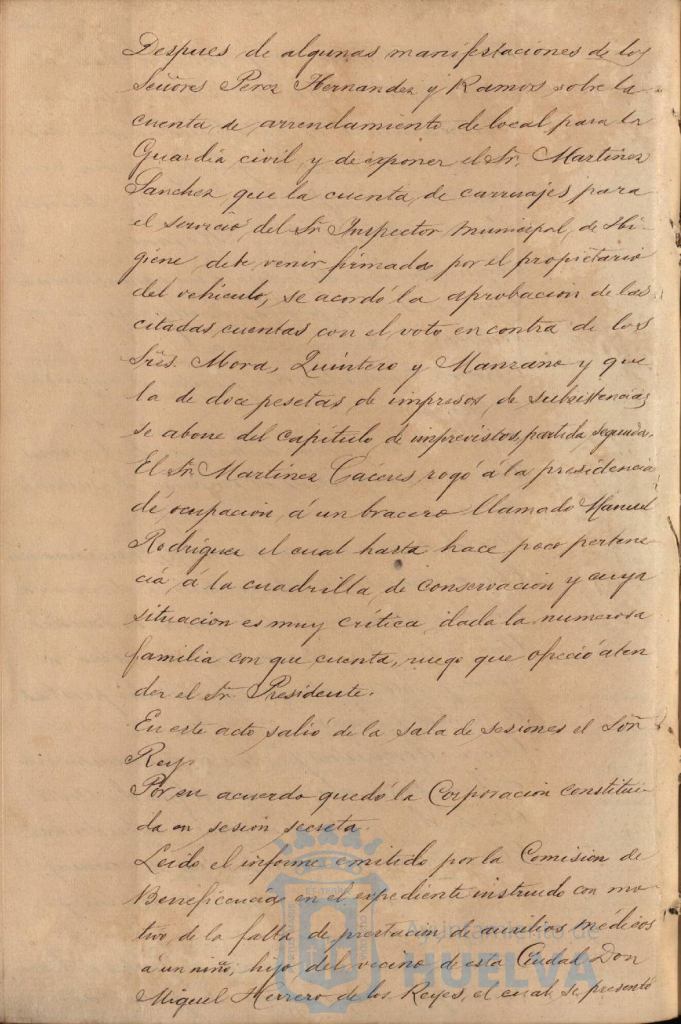 Despues de algunas manifestaciones de los
Señores Perez Hernandez y Ramos sobre la
cuenta de arrendamiento de local para la
Guardia civil y de exponer el Sr. Martinez
Sanchez que la cuenta de carruajes para
el servicio del Sr Inspector municipal de Hi-
giene, debe venir firmada por el propietario
del vehiculo, se acordó la aprobacion de las
citadas cuentas con el voto en contra de los
Sres. Mora, Quintero y Manzano y que
la de doce pesetas de impresos de subsistencias
se abone del capitulo de imprevistos, partida segunda.
El Sr. Martinez Caceres rogó á la presidencia
dé ocupacion á un bracero llamado Manuel
Rodriguez el cual hasta hace poco pertene-
cia á la cuadrilla de conservacion y cuya
situacion es muy crítica dada la numerosa
familia con que cuenta, ruego que ofreció aten
der el Sr. Presidente.
En este acto salió de la sala de sesiones el Señor
Reyes
Por su acuerdo quedó la Corporacion constitui-
da en sesion secreta.
Leido el informe emitido por la Comision de
Beneficencia en el expediente instruido con mo-
tivo de la falta de prestacion de auxilios médicos
á un niño, hijo del vecino de esta Ciudad Don
Miguel Herrero de los Reyes, el cual se presentó
Ayuntamiento de
HUELVA